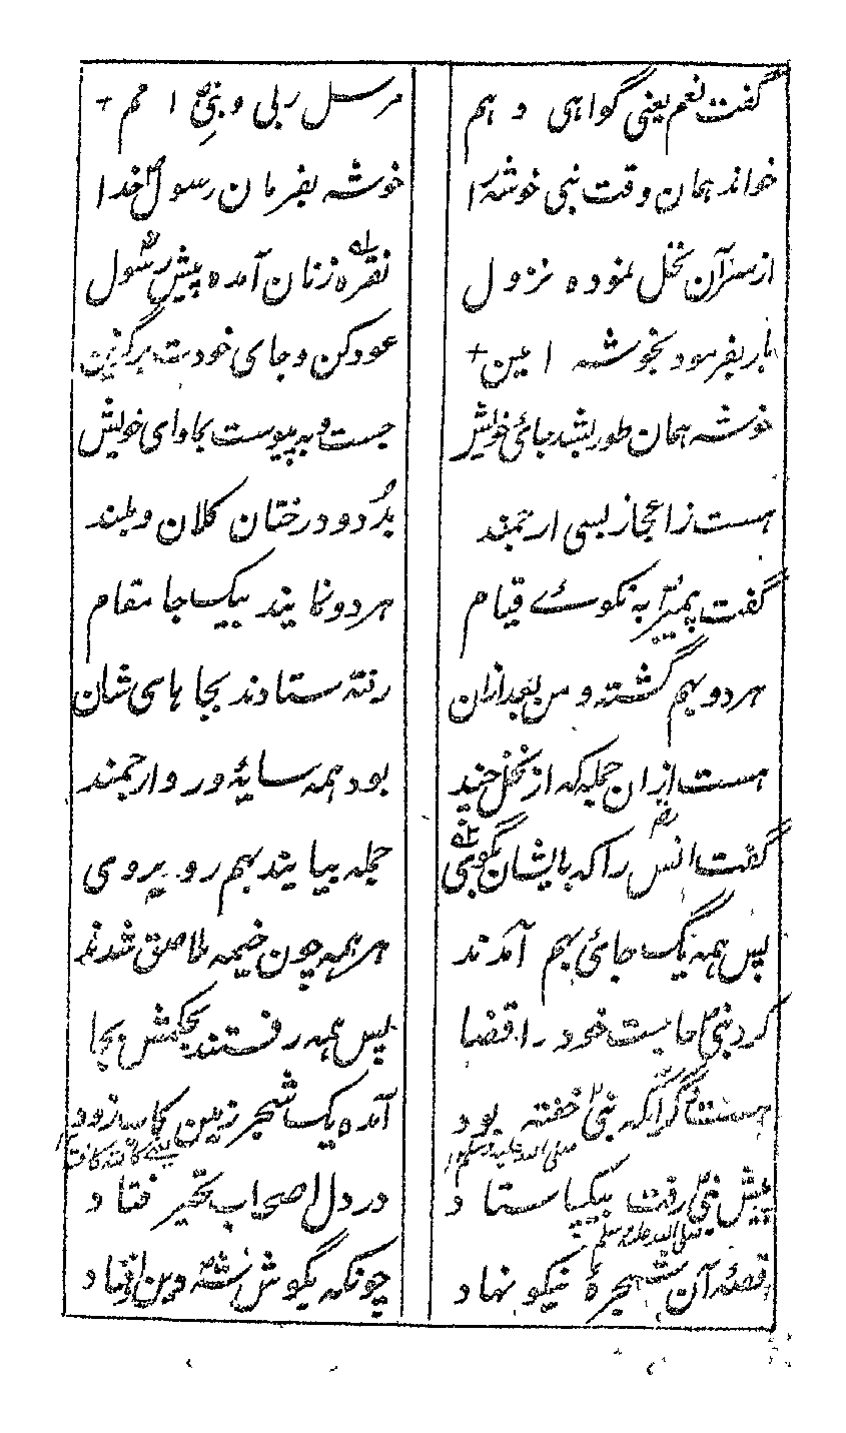 گفت نعم یعنی گواهی دهم مرسل ربی و نبیؐ امم +
خواند همان وقت نبی خوشه را خوشه بفرمان رسولؐ خدا
از سر آن نخل نموده نزول نقره زنان آمده پیش رسولؐ
باز بفرمود بخوشه امین + عود کن و جای خودت برگزین
خوشه همان طور بشد جائ خویش جست و به پیوست بجاوای خویش
هست ز اعجاز بسی ارجمند بدُ دو درختان کلان و بلند
گفت پیمبرؐ به نکوئے قیام هر دو نمایند بیک جا مقام
هر دو بهم گشته و من بعد ازان رفته ستادند بجا های شان
هست ازان جمله که از نخل چند بود همه سایهٔ ور و ارجمند
گفت انسؓ را که بایشان بگوی جمله بیایند بهم رو بروی
پس همه یک جائ بهم آمدند هر همه چون خیمه ملاصق شدند
کرد نبیؐ حاجت خود را قضا پس همه رفتند بحکمش بجا
هست دگر آنکه نبیؐ خفته بود آمده یک شجر زمین
صلی الله علیه وسلم
پیش نبیؐ رفت بیکپا ستاد در دل اصحاب تحیر فتاد
صلی الله علیه وسلم
قصهٔ آن شجرهٔ نیکو نهاد چونکه بگوش